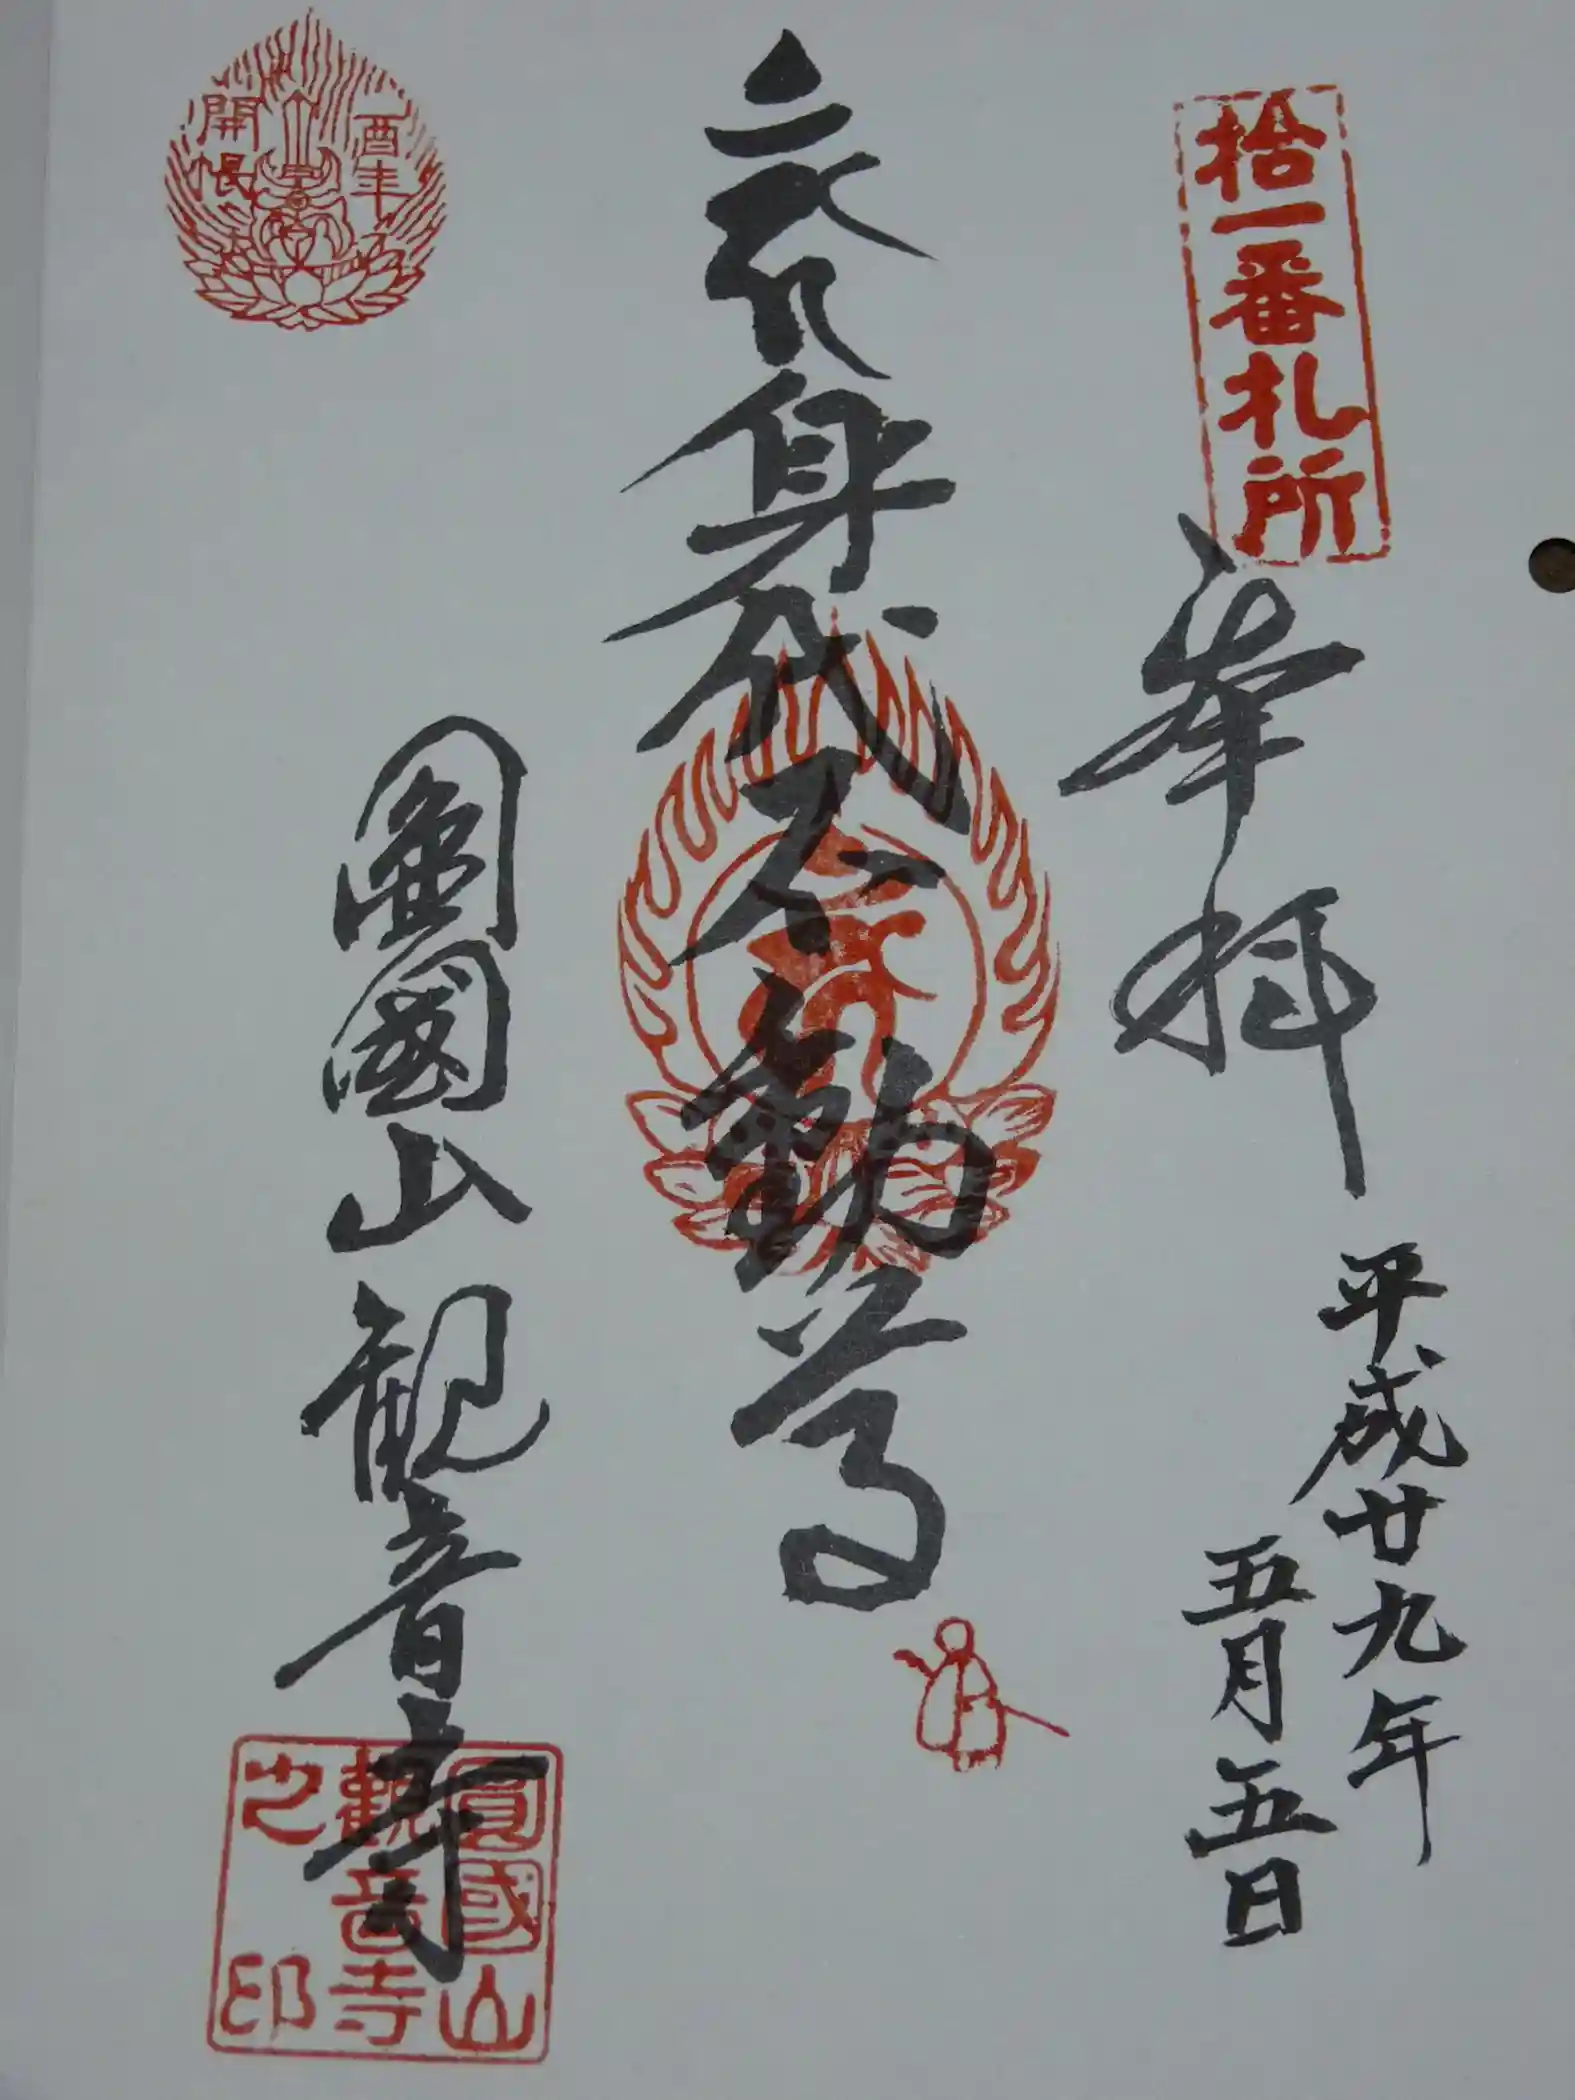 拾一番札所
奉拝
平成廿九年
五月五日
身代不動尊
酉年
開帳
圓國山
観音寺
圓國山
觀音寺
之印